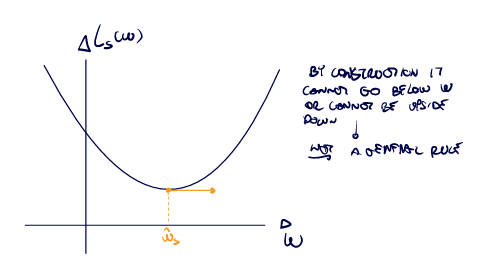 L_s(w)
BY CONSTRUCTION IT
CANNOT GO BELOW W
OR CANNOT BE UPSIDE
DOWN
NOT A GENERAL RULE
ŵ_s
w